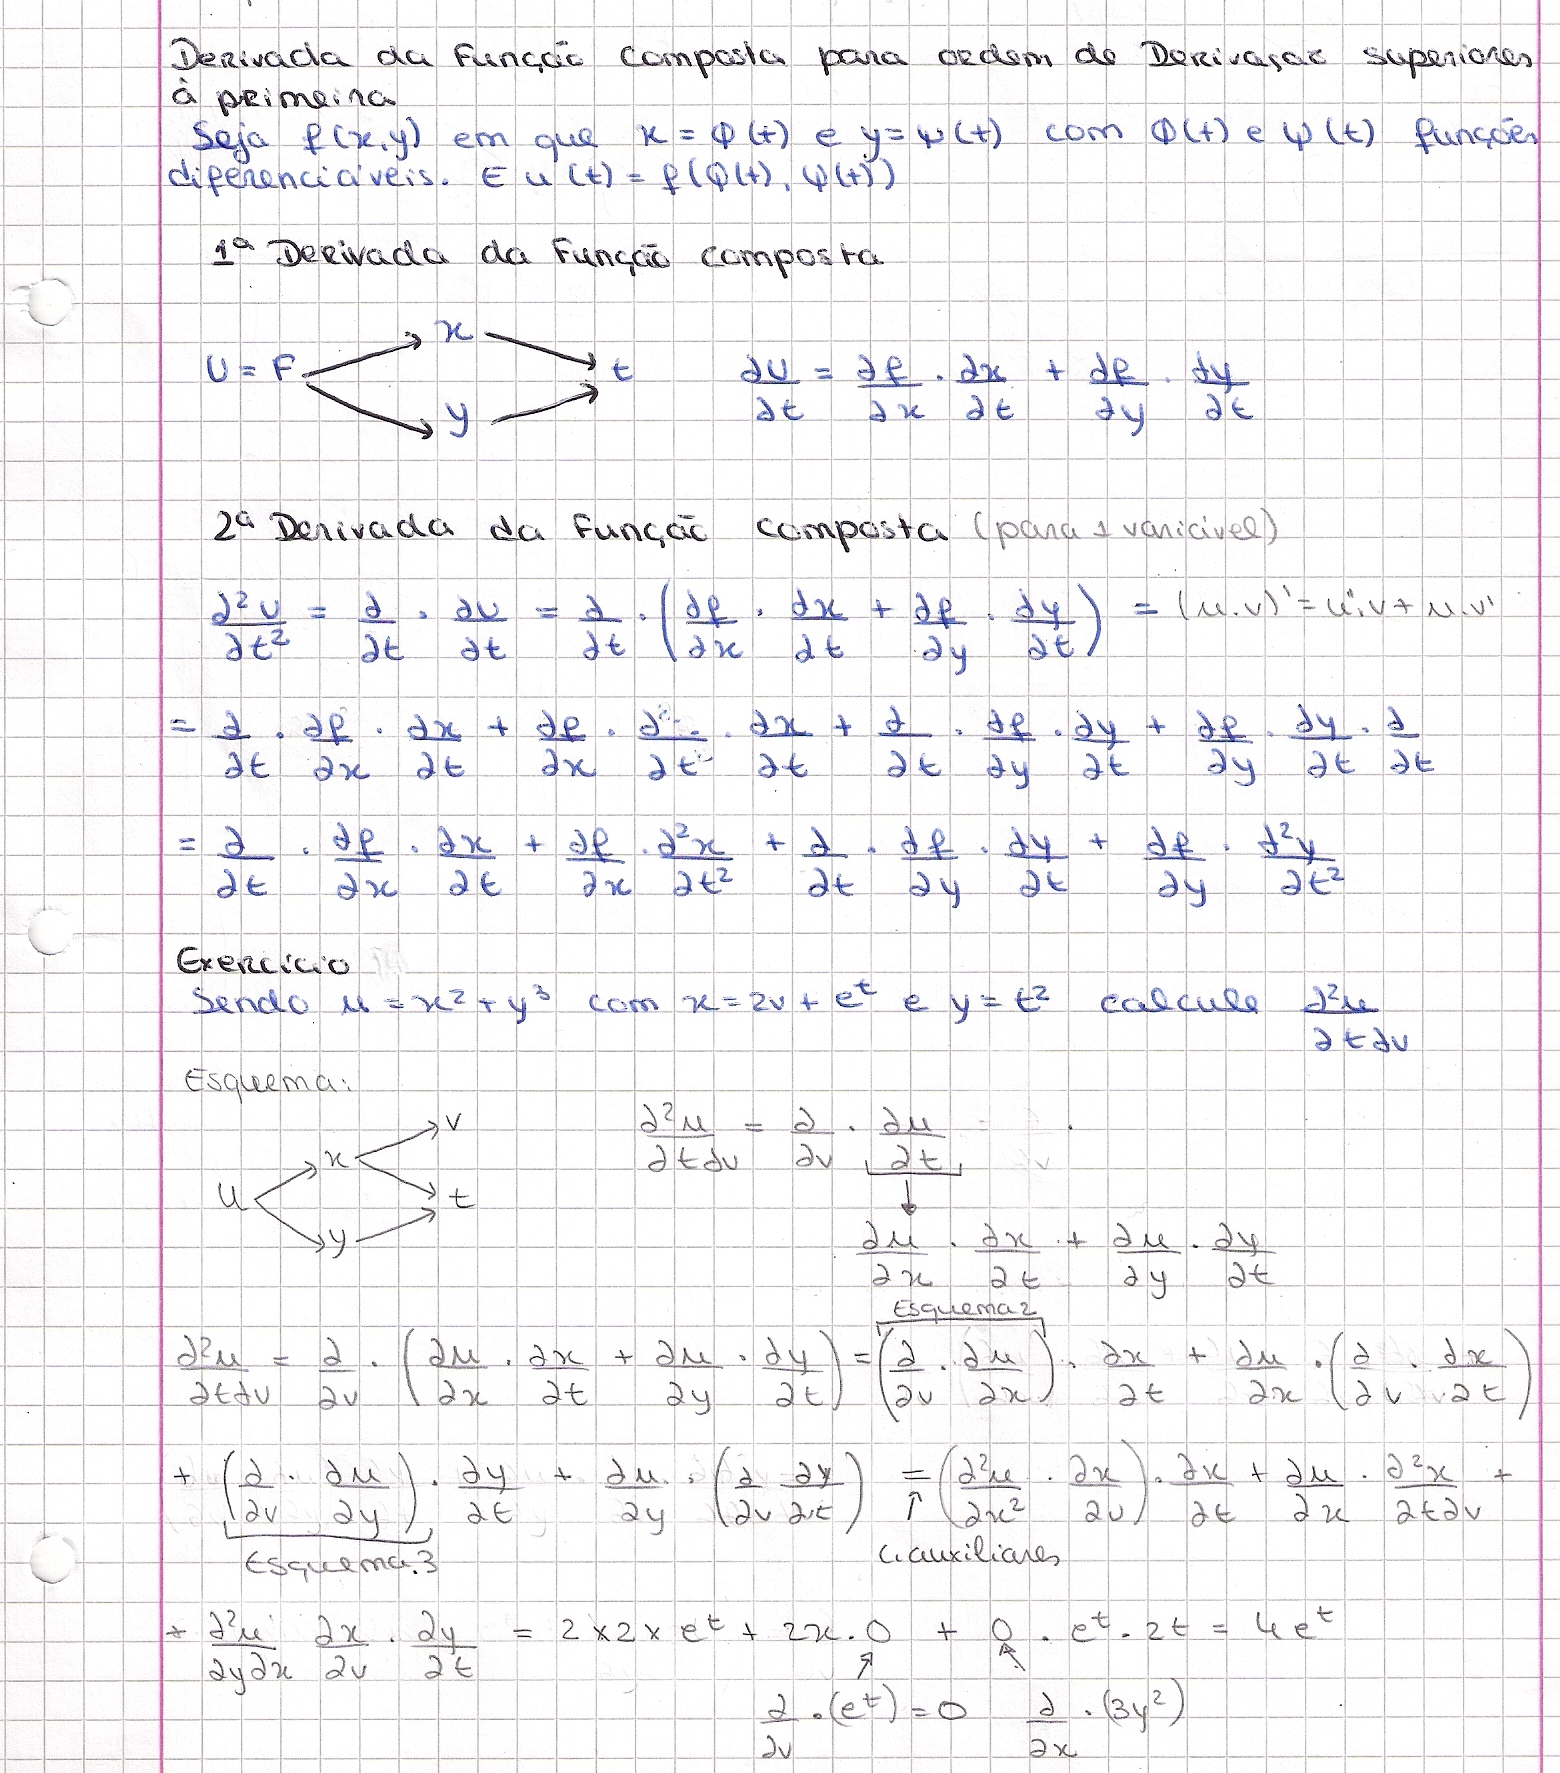 Derivada da Função Composta para ordem de Derivação superiores
à primeira
Seja f(x,y) em que x = φ(t) e y = ψ(t) com φ(t) e ψ(t) funções
diferenciáveis. E u(t) = f(φ(t), ψ(t))
1ª Derivada da Função composta
U = F → x → t, → y → t    ∂U/∂t = ∂f/∂x · ∂x/∂t + ∂f/∂y · ∂y/∂t
2ª Derivada da Função composta (para 1 variável)
∂²U/∂t² = ∂/∂t · ∂U/∂t = ∂/∂t · (∂f/∂x · ∂x/∂t + ∂f/∂y · ∂y/∂t) = (u.v)' = u'.v + u.v'
= ∂/∂t · ∂f/∂x · ∂x/∂t + ∂f/∂x · ∂/∂t · ∂x/∂t + ∂/∂t · ∂f/∂y · ∂y/∂t + ∂f/∂y · ∂y/∂t · ∂/∂t
= ∂/∂t · ∂f/∂x · ∂x/∂t + ∂f/∂x · ∂²x/∂t² + ∂/∂t · ∂f/∂y · ∂y/∂t + ∂f/∂y · ∂²y/∂t²
Exercício
Sendo u = x² + y³ com x = 2v + e^t e y = t² calcule ∂²u/∂t∂v
Esquema:
U → x → v, x → t, U → y → t    ∂²u/∂t∂v = ∂/∂v · ∂u/∂t
∂u/∂x · ∂x/∂t + ∂u/∂y · ∂y/∂t
Esquema 2
∂²u/∂t∂v = ∂/∂v · (∂u/∂x · ∂x/∂t + ∂u/∂y · ∂y/∂t) = (∂/∂v · ∂u/∂x) · ∂x/∂t + ∂u/∂x · (∂/∂v · ∂x/∂t)
+ (∂/∂v · ∂u/∂y) · ∂y/∂t + ∂u/∂y · (∂/∂v ∂y/∂t) = (∂²u/∂x² · ∂x/∂v) · ∂x/∂t + ∂u/∂x · ∂²x/∂t∂v +
Esquema.3    C.auxiliares
+ ∂²u/∂y∂x ∂x/∂v · ∂y/∂t = 2×2×e^t + 2x.0 + 0 · e^t · 2t = 4e^t
∂/∂v · (e^t) = 0    ∂/∂x · (3y²)